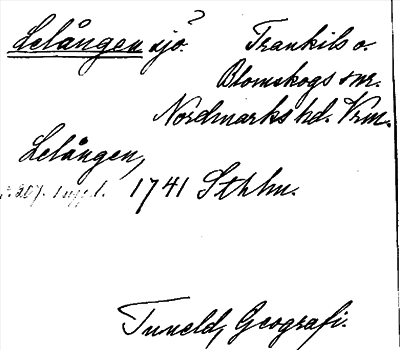 Lelången sjö. ? Trankils o.
Blomskogs snr.
Nordmarks hd. Vrm.
Lelången,
1741 Sthlm.
Tuneld, Geografi.